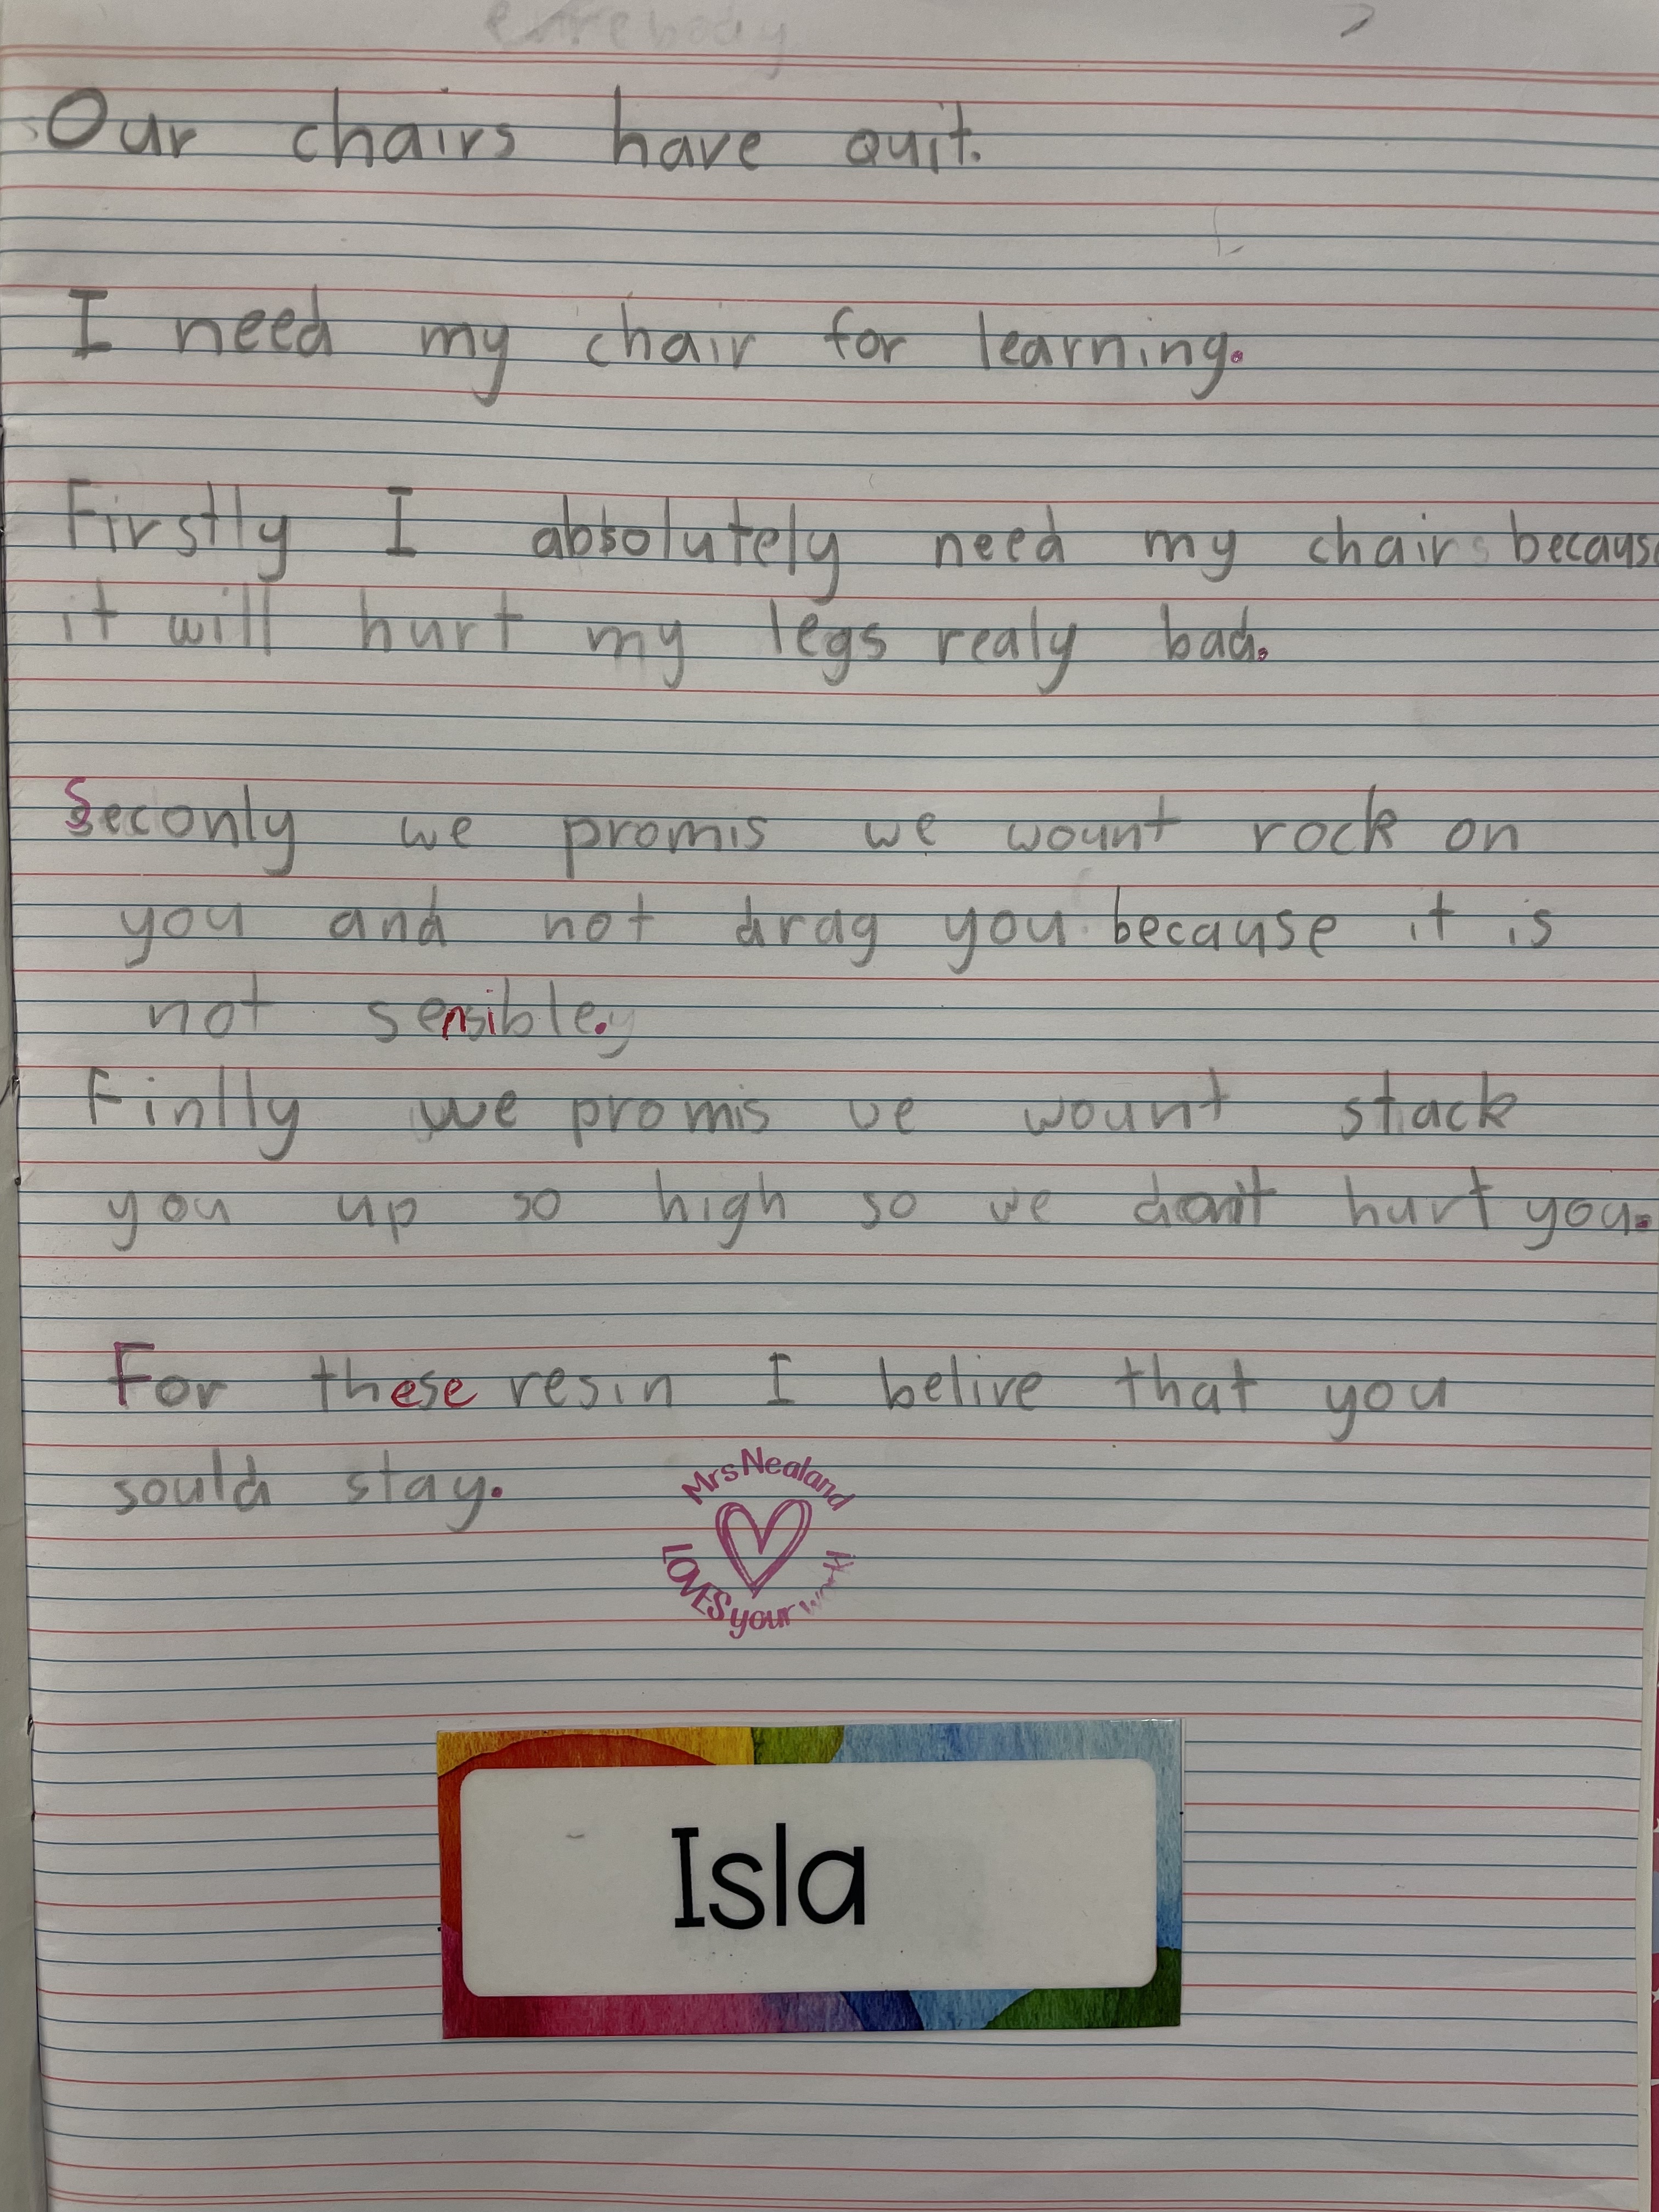 Our chairs have quit.
I need my chair for learning.
Firstly I absolutely need my chair because
it will hurt my legs realy bad.
Seconly we promis we wount rock on
you and not drag you because it is
not sensible.
Finlly we promis we wount stack
you up so high so we don't hurt you.
For these resin I belive that you
sould stay.
Mrs Nealand
LOVES your work
Isla